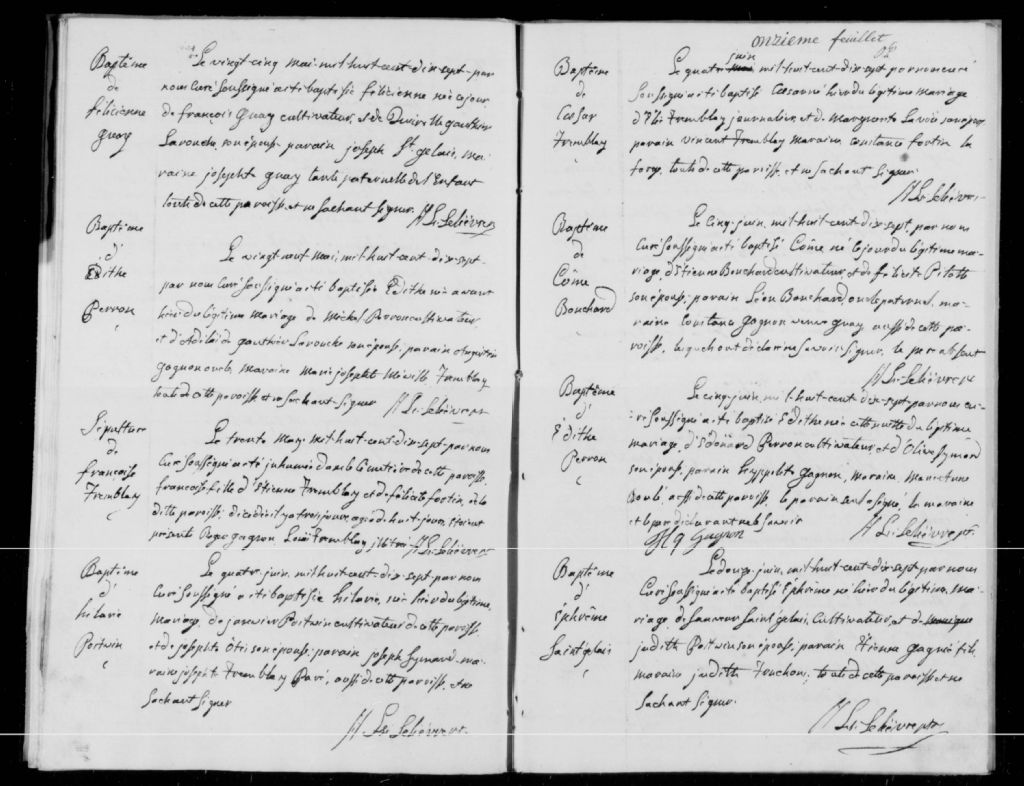 Baptême
de
félicienne
guay
Le vingt cinq mai mil huit cent dix sept par
nous Curé soussigné a été baptisée félicienne née ce jour
de françois Guay cultivateur, et de Ducille gauthier
Larouche, son épouse, parain joseph St gelais, ma-
raine josepht guay tante paternelle de l'Enfant
touts de cette paroisse et ne sachant signer.
Baptême
d'
Edithe
Perron
Le vingt neuf mai, mil huit cent dix sept
par nous Curé soussigné a été baptisée Edithe née avant
hier du légitime mariage de Michel Perron cultivateur
et d'Adélaïde gauthier Larouche son épouse, parain Augustin
gagnon oncle, maraine Marie josephte Tremblay
touts de cette paroisse et ne sachant signer
Sépulture
de
françoise
Tremblay
Le trente May, mil huit cent dix sept par nous
Curé soussigné a été inhumée dans le Cimetière de cette paroisse
françoise fille d'Etienne Tremblay et de félicité fortin, de la
dite paroisse, décédée il y a trois jours, agée de huit jours, étaient
présents Roger gagnon, Louis Tremblay
Baptême
d'
hilaire
Poitvin
Le quatre juin, mil huit cent dix sept par nous
Curé soussigné a été baptisée hilarie, née hier du légitime
mariage de janvier Poitvin cultivateur de cette paroisse
et de josephte son épouse, parain joseph Symard ma-
raine josepte Tremblay Pavé, aussi de cette paroisse, et ne
sachant signer
onzieme feuillet
Baptême
de
Cæsar
Tremblay
Le quatre juin mil huit cent dix sept par nous curé
soussigné a été baptisé Cæsar né hier du légitime mariage
d'Elie Tremblay journalier, et de Marguerite Lavoie son épouse
parain vincent Tremblay maraine constance fortin la
forge, touts de cette paroisse, et ne sachant signer
Baptême
de
Côme
Bouchard
Le cinq juin, mil huit cent dix sept, par nous
curé soussigné a été baptisé Côme né le jour du légitime ma-
riage d'Etienne Bouchard cultivateur, et de félicité Pilotte
son épouse, parain Léon Bouchard oncle paternel, ma-
raine constance gagnon veuve guay aussi de cette pa-
roisse, lesquels ont déclaré ne savoir signer, le père absent
Baptême
d'
Edithe
Perron
Le cinq juin, mil huit cent dix sept par nous cu-
ré soussigné a été baptisée Edithe née cette nuit du légitime
mariage d'Edouard Perron cultivateur, et d'Olive Symard
son épouse, parain hyppolite gagnon, maraine
Boulé aussi de cette paroisse, le parain seul a signé, la maraine
et le père déclarant ne le savoir
H G Gagnon
Baptême
d'
Ephrême
Saint gelais
Le douze juin, mil huit cent dix sept par nous
Curé soussigné a été baptisé Ephrême né hier du légitime ma-
riage de Sauveur Saint gelais, Cultivateur, et de
judith Poitvin son épouse, parain Etienne Gagné fils
maraine judith Truchon, touts de cette paroisse et ne
sachant signer.